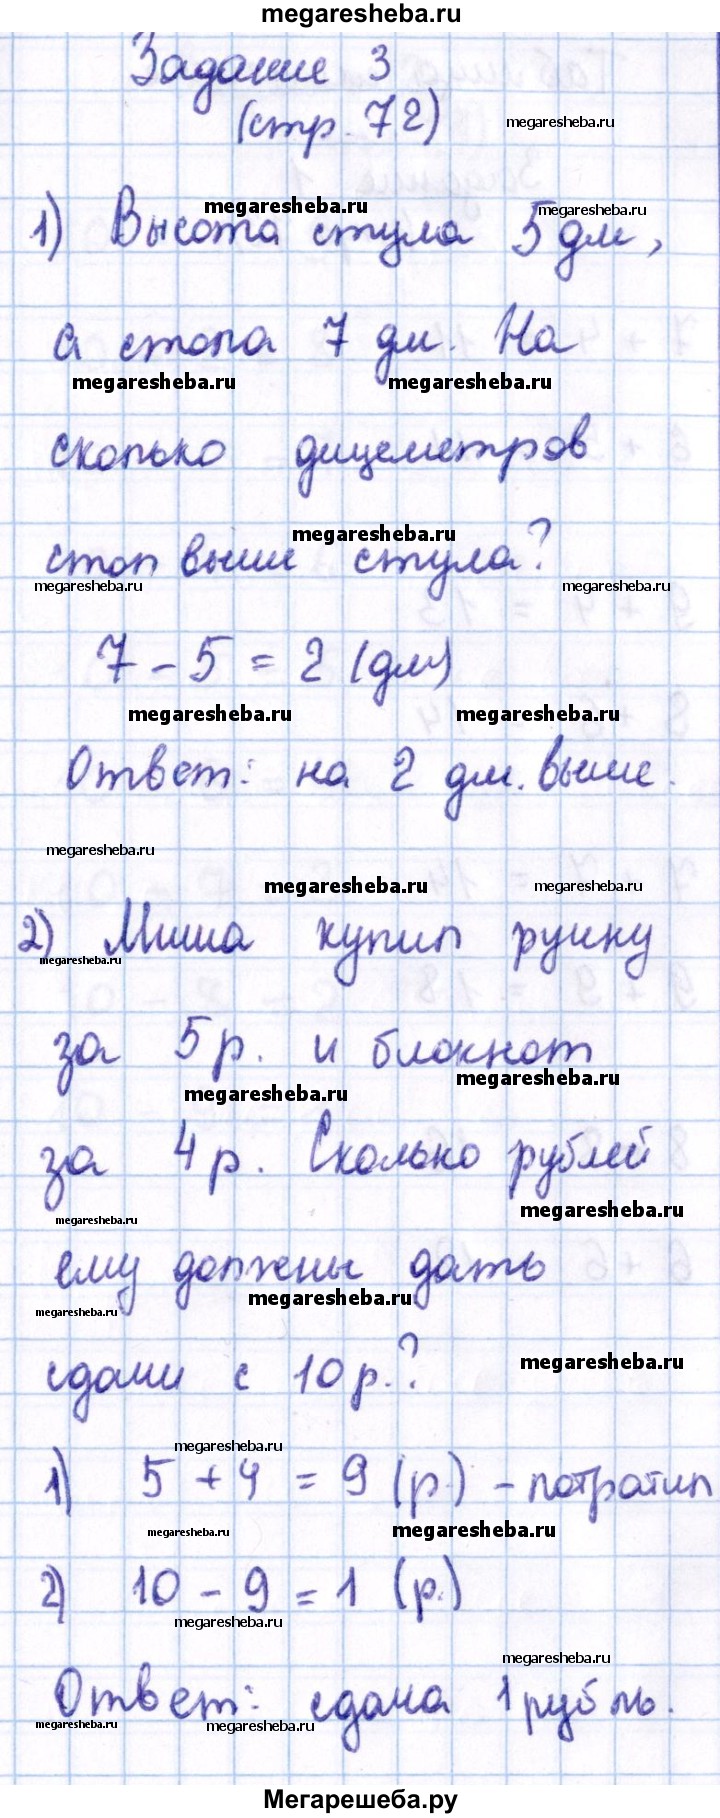 megaresheba.ru
Задание 3
(стр. 72)
megaresheba.ru
megaresheba.ru megaresheba.ru
1) Высота стула 5 дм,
а стола 7 дм. На
megaresheba.ru megaresheba.ru
сколько дициметров
megaresheba.ru
стол выше стула?
megaresheba.ru megaresheba.ru
7 - 5 = 2 (дм)
megaresheba.ru megaresheba.ru
Ответ: на 2 дм. выше.
megaresheba.ru
megaresheba.ru megaresheba.ru
2) Миша купил ручку
megaresheba.ru
за 5 р. и блокнот
megaresheba.ru megaresheba.ru
за 4 р. Сколько рублей
megaresheba.ru megaresheba.ru
ему должны дать
megaresheba.ru megaresheba.ru
сдачи с 10 р.?
megaresheba.ru
megaresheba.ru
1) 5 + 4 = 9 (р.) - потратил
megaresheba.ru megaresheba.ru
2) 10 - 9 = 1 (р.)
megaresheba.ru
megaresheba.ru
Ответ: сдача 1 рубль.
megaresheba.ru megaresheba.ru
Мегарешеба.ру